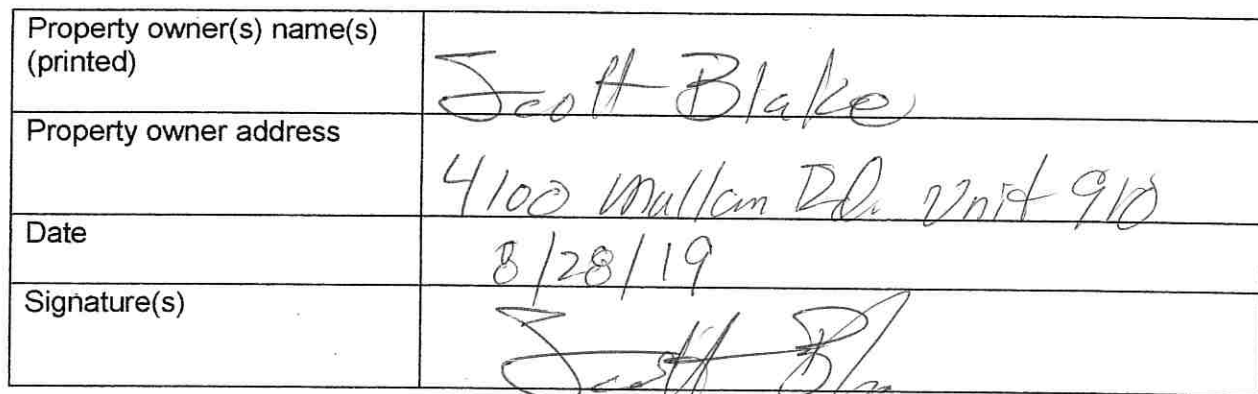 Property owner(s) name(s)
(printed)
Scott Blake
Property owner address
4100 Mullan Rd. Unit 910
Date
8/28/19
Signature(s)
Scott Bl